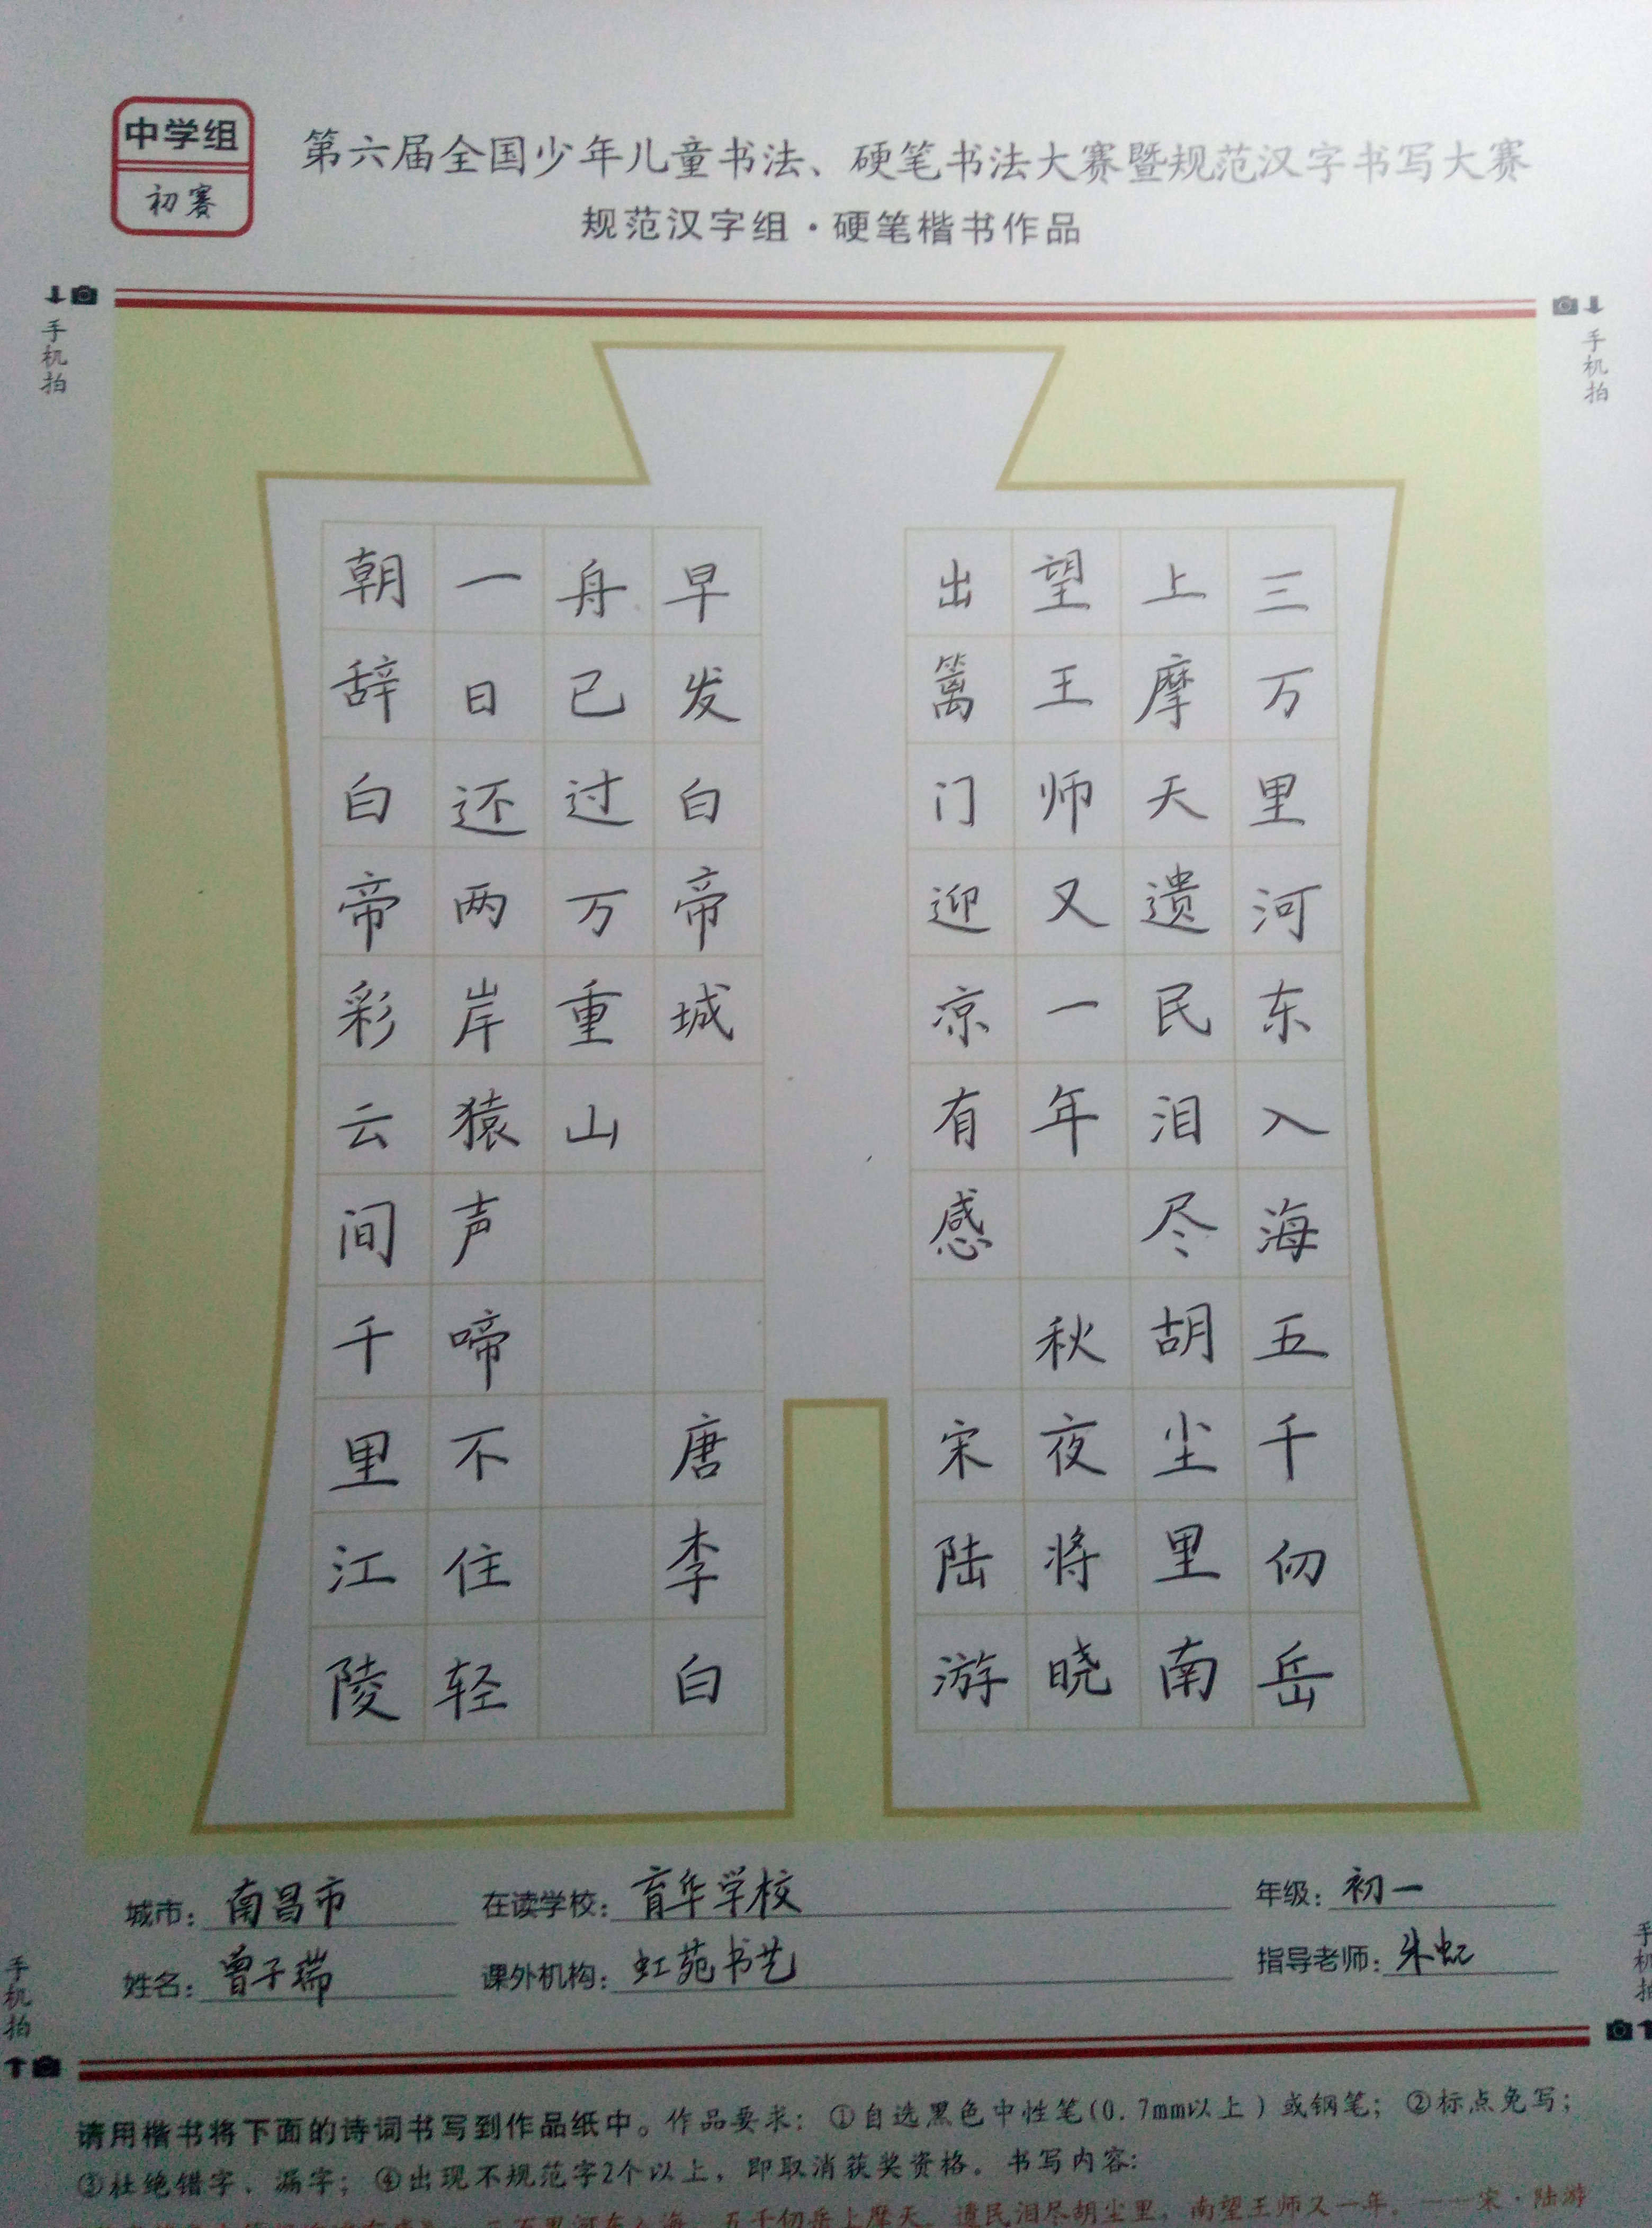 中学组
初赛
第六届全国少年儿童书法、硬笔书法大赛暨规范汉字书写大赛
规范汉字组·硬笔楷书作品
手机拍
手机拍
三万里河东入海五千仞岳
上摩天遗民泪尽胡尘里南
望王师又一年秋夜将晓
出篱门迎凉有感宋陆游
早发白帝城唐李白
舟已过万重山
一日还两岸猿声啼不住轻
朝辞白帝彩云间千里江陵
城市：南昌市
在读学校：育华学校
年级：初一
姓名：曾子瑞
课外机构：虹苑书艺
指导老师：朱虹
手机拍
手机拍
请用楷书将下面的诗词书写到作品纸中。作品要求：①自选黑色中性笔(0.7mm以上）或钢笔；②标点免写；
③杜绝错字、漏字；④出现不规范字2个以上，即取消获奖资格。书写内容：
三万里河东入海，五千仞岳上摩天。遗民泪尽胡尘里，南望王师又一年。——宋·陆游